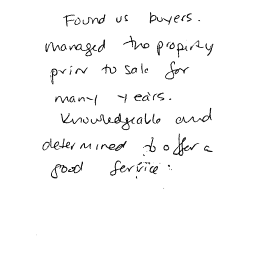 Found us buyers.
Managed the property
prior to sale for
many years.
Knowledgeable and
determined to offer a
good service.